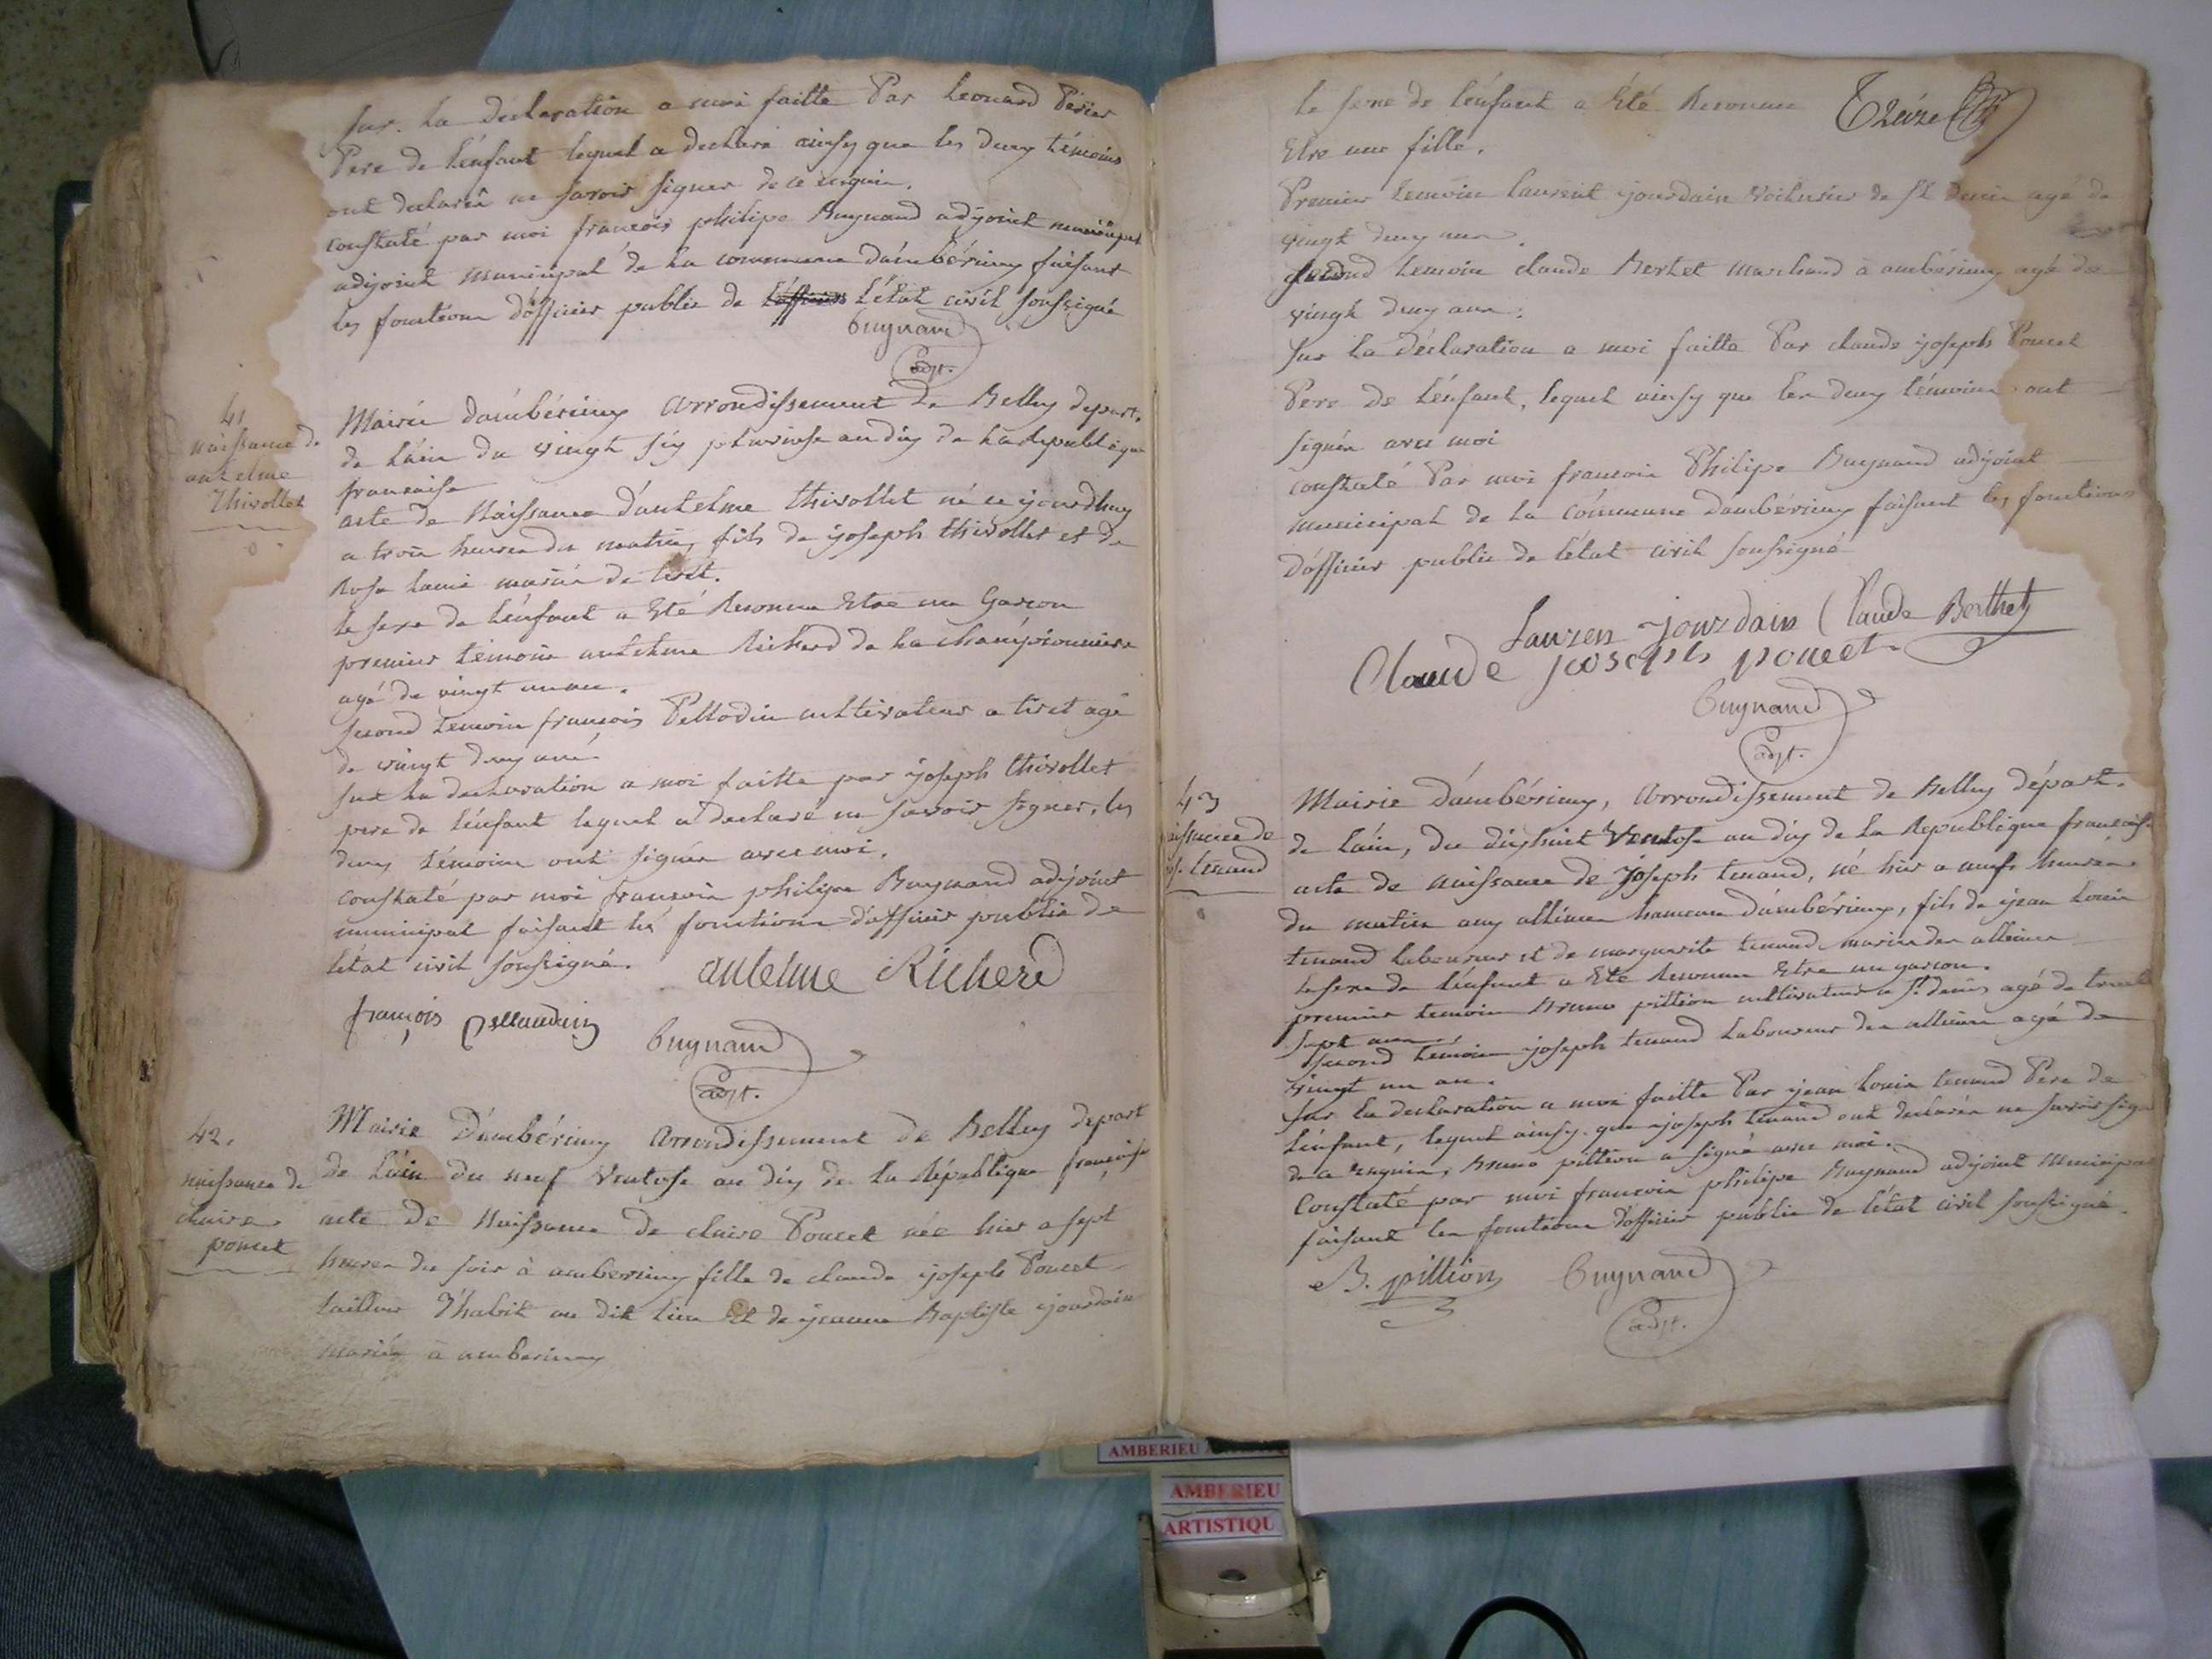 sur la declaration a moi faitte Par Leonard Périer
Pere de l'énfant lequel a declaré ainsy que les deux témoins
ont declaré ne savoir signer de ce enquis.
constaté par moi françois philipe Buynand adjoint municipal
adjoint municipal de la commune d'ambérieux faisant
les fonctions d'officier public de l'officier l'état civil soussigné
Buynand
adjt.
41
naissance de
antelme
Thivollet
Mairie d'ambérieux arrondissement de Belley depart.
de l'ain du vingt six pluviose an dix de la Republique
francaise
acte de Naissance d'antelme thivollet né ce jourdhuy
a trois heures du matin, fils de joseph thivollet et de
Rose mariés de tiret.
le sexe de l'énfant a Eté Reconnu Etre un Garcon
premier témoin antelme Richerd de la championniere
agé de vingt un an.
second temoin françois Pellodin cultivateur a tiret agé
de vingt deux ans
sur la declaration a moi faitte par joseph thivollet
pere de l'énfant lequel a declaré ne savoir signer, les
deux témoins ont signés avec moi.
constaté par moi francois philipe Buynand adjoint
municipal faisant les fonctions d'officier public de
létat civil soussigné.
antelme Richerd
françois pellaudin
Buynand
adjt.
42.
naissance de
claire
poncet
Mairie D'ambérieux Arrondissement de Belley depart
de l'ain du neuf Ventose an dix de la République francaise
acte de Naissance de claire Poncet née hier a sept
heures du soir à amberieux fille de claude joseph Poncet
tailleur d'habit au dit lieu Et de jeanne Baptiste jourdain
mariés à amberieux
Treize
le sexe de l'énfant a Eté Reconnu
Etre une fille.
Premier temoin laurent jourdain voiturier de St Denis agé de
vingt deux ans.
second temoin claude Bertet marchand à ambérieux agé de
vingt deux ans.
sur la déclaration a moi faitte Par claude joseph Poncet
Pere de l'énfant, lequel ainsy que les deux témoins ont
signés avec moi
constaté Par moi francois Philipe Buynand adjoint
municipal de la commune d'ambérieux faisant les fonctions
d'officier public de l'état civil soussigné
Lauren jourdain Claude Berthet
Claude joseph poncet
Buynand
adjt.
43
naissance de
jos. tenand
Mairie d'ambérieux, Arrondissement de Belley départ.
de l'ain, du dixhuit Ventose an dix de la Republique francaise
acte de naissance de joseph tenand, né hier a neuf heures
du matin aux allimes hameau d'ambérieux, fils de jean louis
tenand laboureur et de marguerite tenand mariés des allimes
le sexe de l'énfant a Eté Reconnu Etre un garcon.
premier temoin Bruno pittion cultivateur a St denis agé de trente
sept ans.
second témoin joseph tenand laboureur des allimes agé de
vingt un an.
sur la declaration a moi faitte Par jean louis tenand Pere de
l'énfant, lequel ainsy que joseph tenand ont declarés ne savoir sign
de ce enquis, Bruno pittion a signé avec moi.
Constaté par moi francois philipe Buynand adjoint municipal
faisant les fonctions d'officier public de l'état civil soussigné.
B. pittion
Buynand
adjt.
AMBERIEU
AMBERIEU
ARTISTIQU